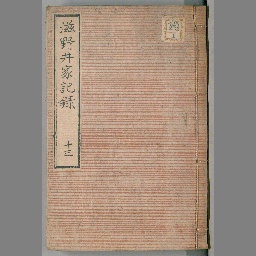 滋野井家記録
十三